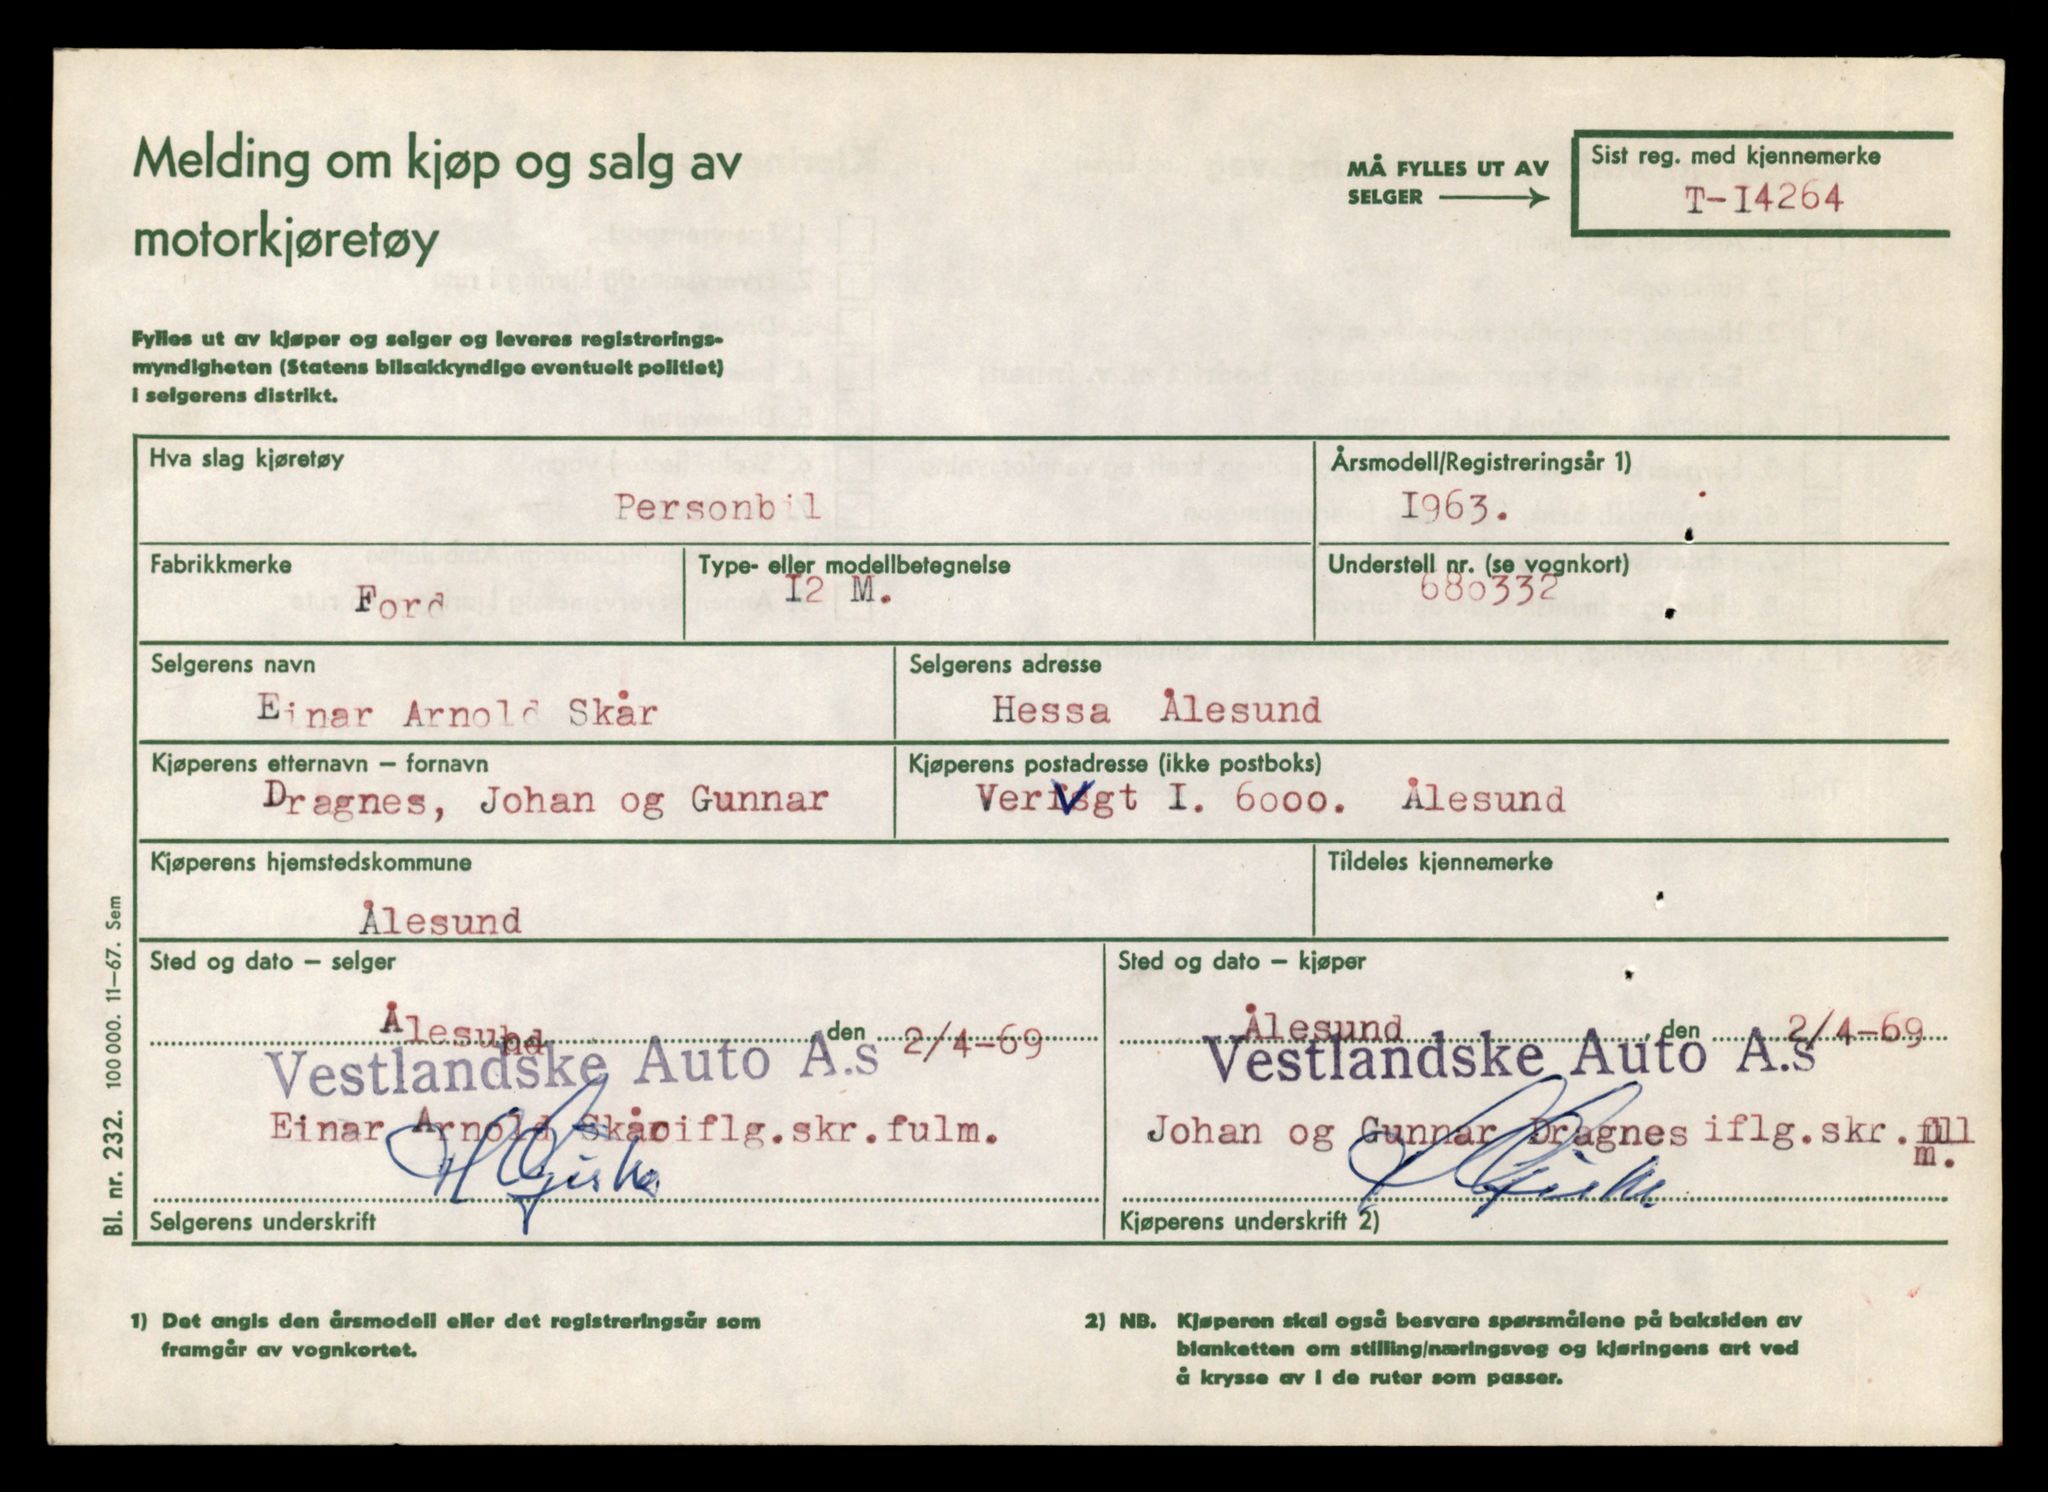 Melding om kjøp og salg av
motorkjøretøy
MÅ FYLLES UT AV
SELGER
Sist reg. med kjennemerke
T-I4264
Fylles ut av kjøper og selger og leveres registrerings-
myndigheten (Statens bilsakkyndige eventuelt politiet)
i selgerens distrikt.
Hva slag kjøretøy
Personbil
Årsmodell/Registreringsår 1)
I963.
Fabrikkmerke
Ford
Type- eller modellbetegnelse
I2 M.
Understell nr. (se vognkort)
680332
Selgerens navn
Einar Arnold Skår
Selgerens adresse
Hessa Ålesund
Kjøperens etternavn – fornavn
Dragnes, Johan og Gunnar
Kjøperens postadresse (ikke postboks)
Verfsgt I. 6000. Ålesund
Kjøperens hjemstedskommune
Ålesund
Tildeles kjennemerke
Sted og dato – selger
Ålesund den 2/4-69
Vestlandske Auto A.s
Einar Arnold Skår iflg.skr.fulm.
Selgerens underskrift
Sted og dato – kjøper
Ålesund den 2/4-69
Vestlandske Auto A.s
Johan og Gunnar Dragnes iflg.skr.full
m.
Kjøperens underskrift 2)
Bl. nr. 232. 100 000. 11–67. Sem
1) Det angis den årsmodell eller det registreringsår som
framgår av vognkortet.
2) NB. Kjøperen skal også besvare spørsmålene på baksiden av
blanketten om stilling/næringsveg og kjøringens art ved
å krysse av i de ruter som passer.